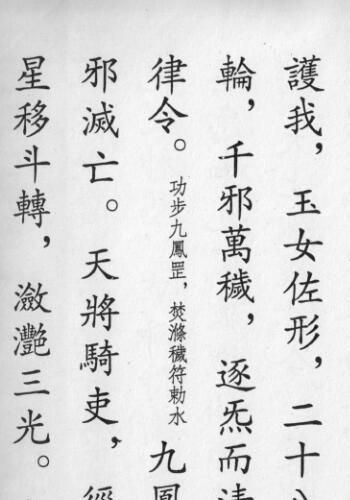 護我，玉女佐形，二十八
輪，千邪萬穢，逐炁而清
律令。功步九鳳罡，焚滌穢符勅水 九鳳
邪滅亡。天將騎吏，
星移斗轉，瀲灔三光。